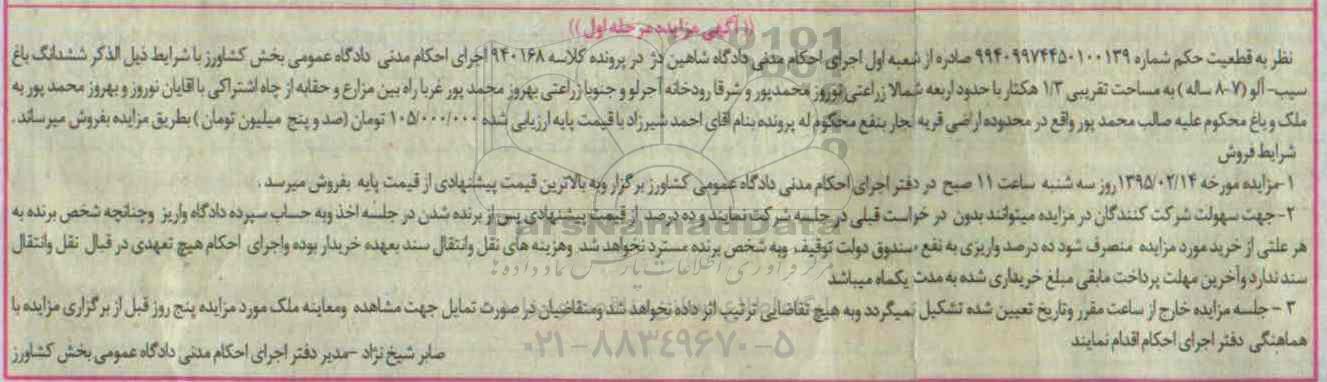 ((آگهی مزایده مرحله اول))
نظر به قطعیت حکم شماره ۹۹۴۰۹۹۷۴۴۵۰۱۰۰۱۳۹ صادره از شعبه اول اجرای احکام مدنی دادگاه شاهین دژ در پرونده کلاسه ۹۴۰۱۶۸ اجرای احکام مدنی دادگاه عمومی بخش کشاورز با شرایط ذیل الذکر ششدانگ باغ
سیب-آلو (۷-۸ ساله) به مساحت تقریبی ۱/۳ هکتار با حدود اربعه شمالا زراعتی نوروز محمدپور و شرقا رودخانه آجرلو و جنوبا زراعتی بهروز محمد پور غربا راه بین مزارع و حقابه از چاه اشتراکی با آقایان نوروز و بهروز محمد پور به
ملک و باغ محکوم علیه صالب محمد پور واقع در محدوده اراضی قریه لجار بنفع محکوم له پرونده بنام آقای احمد شیرزاد با قیمت پایه ارزیابی شده ۱۰۵/۰۰۰/۰۰۰ تومان (صد و پنج میلیون تومان) بطریق مزایده بفروش میرساند.
شرایط فروش
۱-مزایده مورخه ۱۳۹۵/۰۲/۱۴ روز سه شنبه ساعت ۱۱ صبح در دفتر اجرای احکام مدنی دادگاه عمومی کشاورز برگزار وبه بالاترین قیمت پیشنهادی از قیمت پایه بفروش میرسد.
۲-جهت سهولت شرکت کنندگان در مزایده میتوانند بدون در خواست قبلی در جلسه شرکت نمایند و ده درصد از قیمت پیشنهادی پس از برنده شدن در جلسه اخذ وبه حساب سپرده دادگاه واریز وچنانچه شخص برنده به
هر علتی از خرید مورد مزایده منصرف شود ده درصد واریزی به نفع صندوق دولت توقیف وبه شخص برنده مسترد نخواهد شد وهزینه های نقل وانتقال سند بعهده خریدار بوده واجرای احکام هیچ تعهدی در قبال نقل وانتقال
سند ندارد وآخرین مهلت پرداخت مابقی مبلغ خریداری شده به مدت یکماه میباشد
۳-جلسه مزایده خارج از ساعت مقرر وتاریخ تعیین شده تشکیل نمیگردد وبه هیچ تقاضایی ترتیب اثر داده نخواهد شد ومتقاضیان در صورت تمایل جهت مشاهده ومعاینه ملک مورد مزایده پنج روز قبل از برگزاری مزایده با
هماهنگی دفتر اجرای احکام اقدام نمایند
صابر شیخ نژاد -مدیر دفتر اجرای احکام مدنی دادگاه عمومی بخش کشاورز
ParsNamadData
مرکز فرآوری اطلاعات پارس نماد داده ها
۰۲۱-۸۸۳۴۹۶۷۰-۵